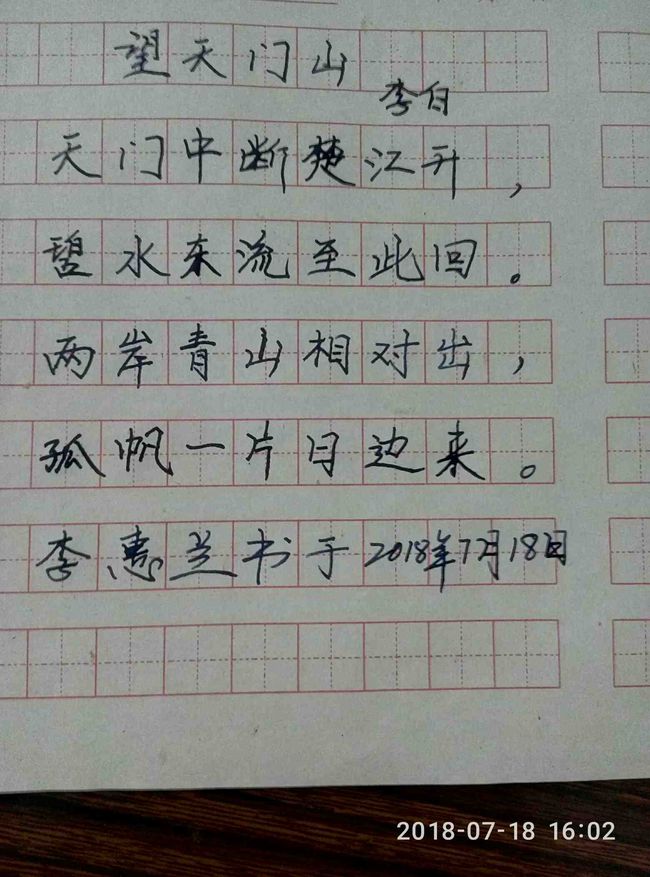 望天门山
李白
天门中断楚江开,
碧水东流至此回。
两岸青山相对出,
孤帆一片日边来。
李惠兰书于2018年7月18日
2018-07-18 16:02